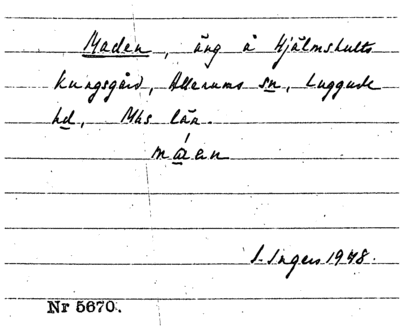 Maden, äng å Hjälmshults
kungsgård, Allerums sn, Luggude
hd, Mhs län.
máen
I. Ingers 1948.
Nr 5670.